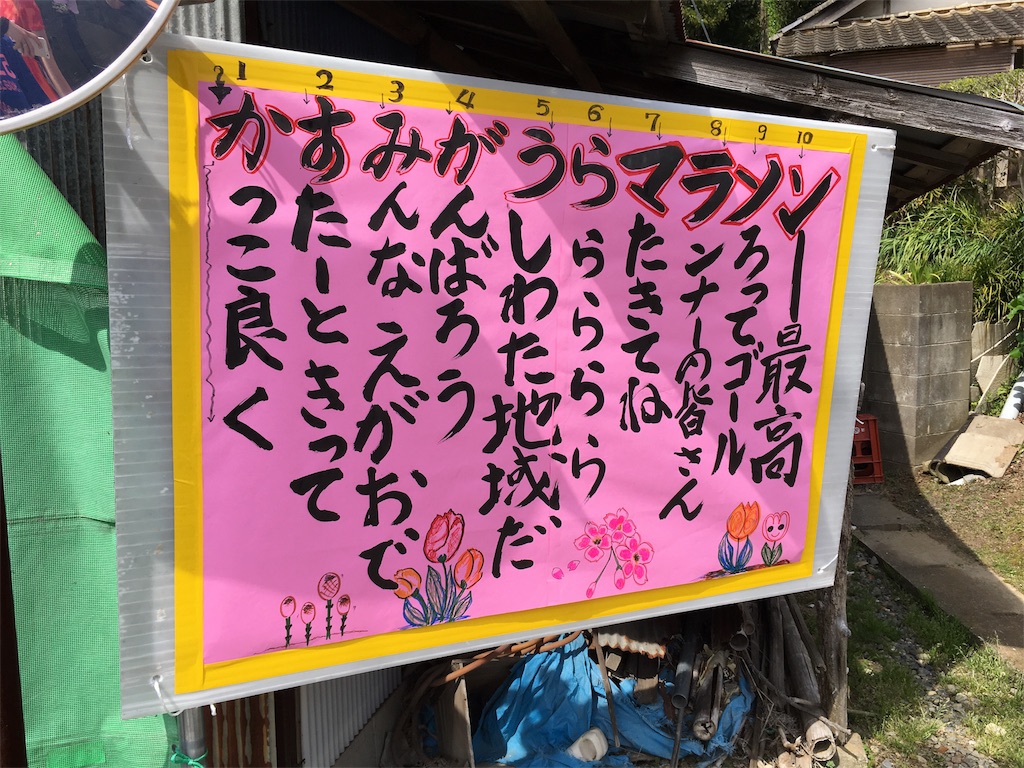 1 2 3 4 5 6 7 8 9 10
かっこ良く
すたーときって
みんな えがおで
がんばろう
うしわた地域だ
らららららら
マたきてね
ランナーの皆さん
ソろってゴール
ンー最高